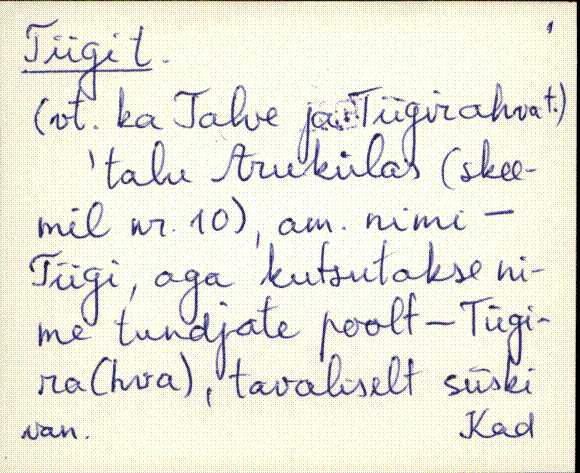 Tiigi t.
1
(vt. ka Talve ja Tiigirahva t.)
'talu Arukülas (skee-
mil nr. 10), am. nimi –
Tiigi, aga kutsutakse ni-
me tundjate poolt – Tiigi-
ra(hva), tavaliselt siiski
van. Kad